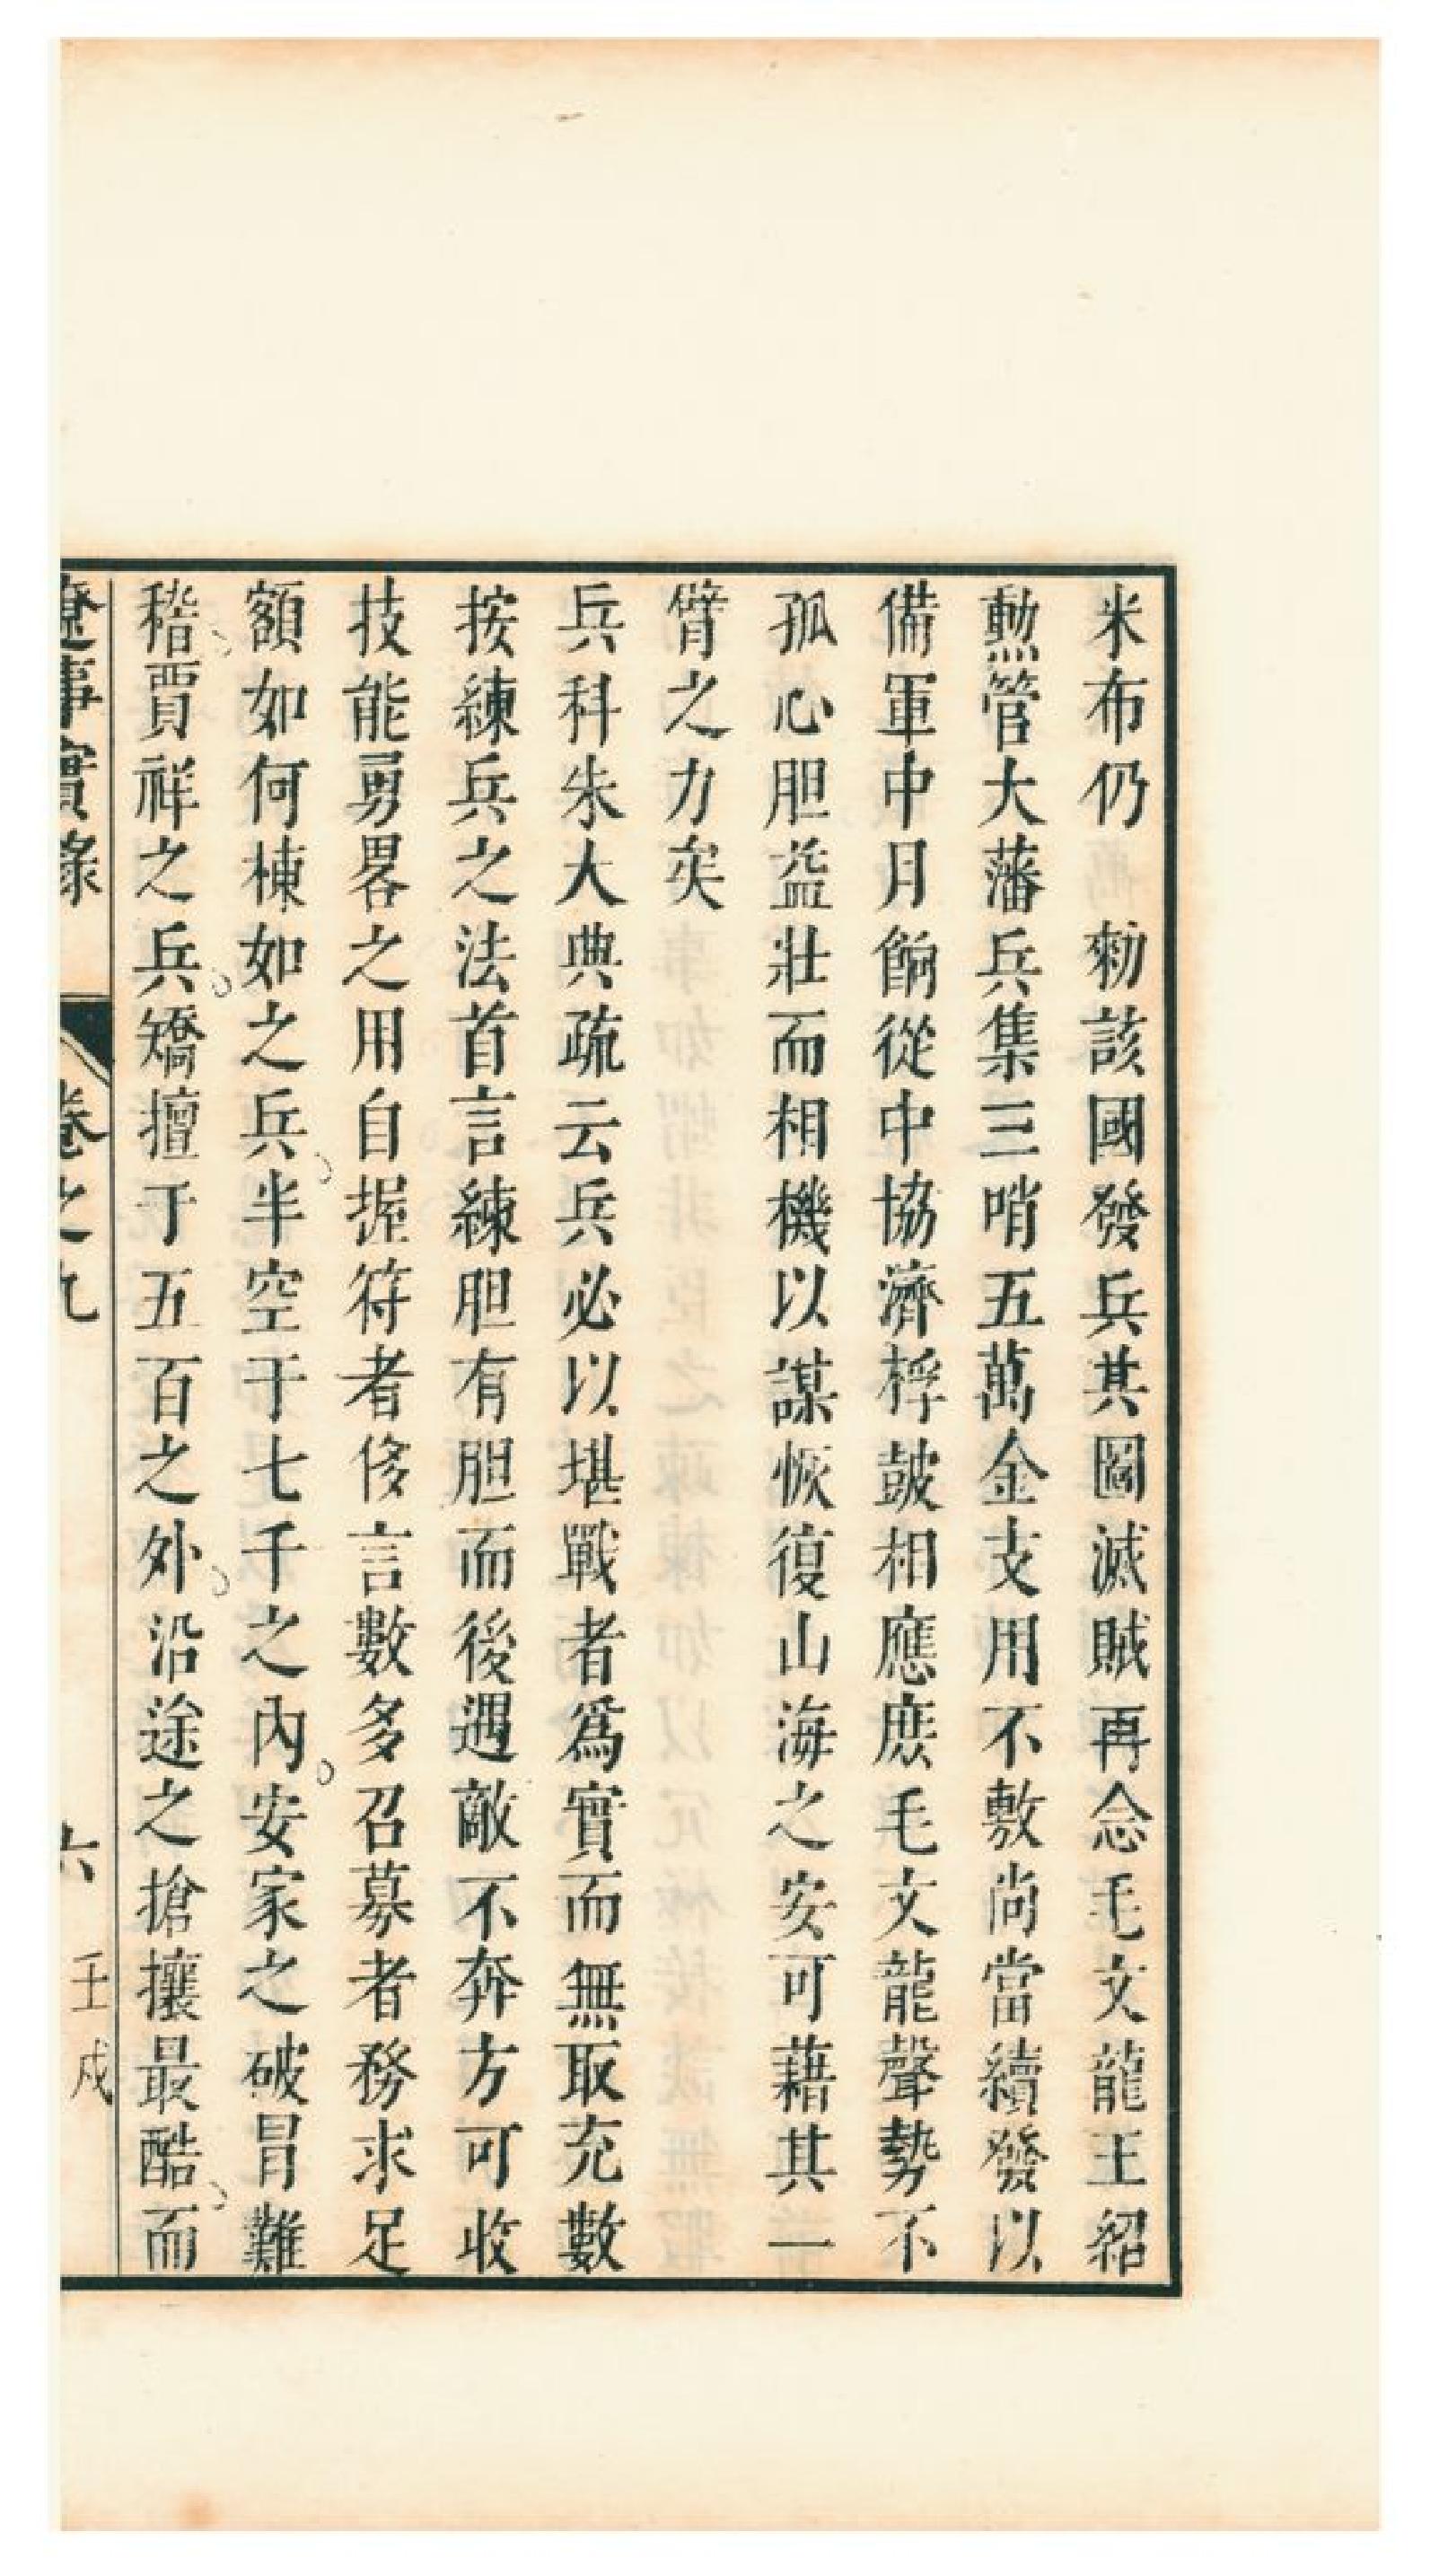 米布仍　勑該國發兵共圖滅賊再念毛文龍王紹
勲管大藩兵集三哨五萬金支用不敷尚當續發以
備軍中月餉從中協濟桴皷相應庶毛文龍聲勢不
孤心胆益壯而相機以謀恢復山海之安可藉其一
臂之力矣
兵科朱大典疏云兵必以堪戰者爲實而無取充數
按練兵之法首言練胆有胆而後遇敵不奔方可收
技能勇畧之用自握符者侈言數多召募者務求足
額如何棟如之兵半空于七千之內安家之破冒難
稽賈祥之兵矯擅于五百之外沿途之搶攘最酷而
遼事實錄　卷之九　六　壬戌